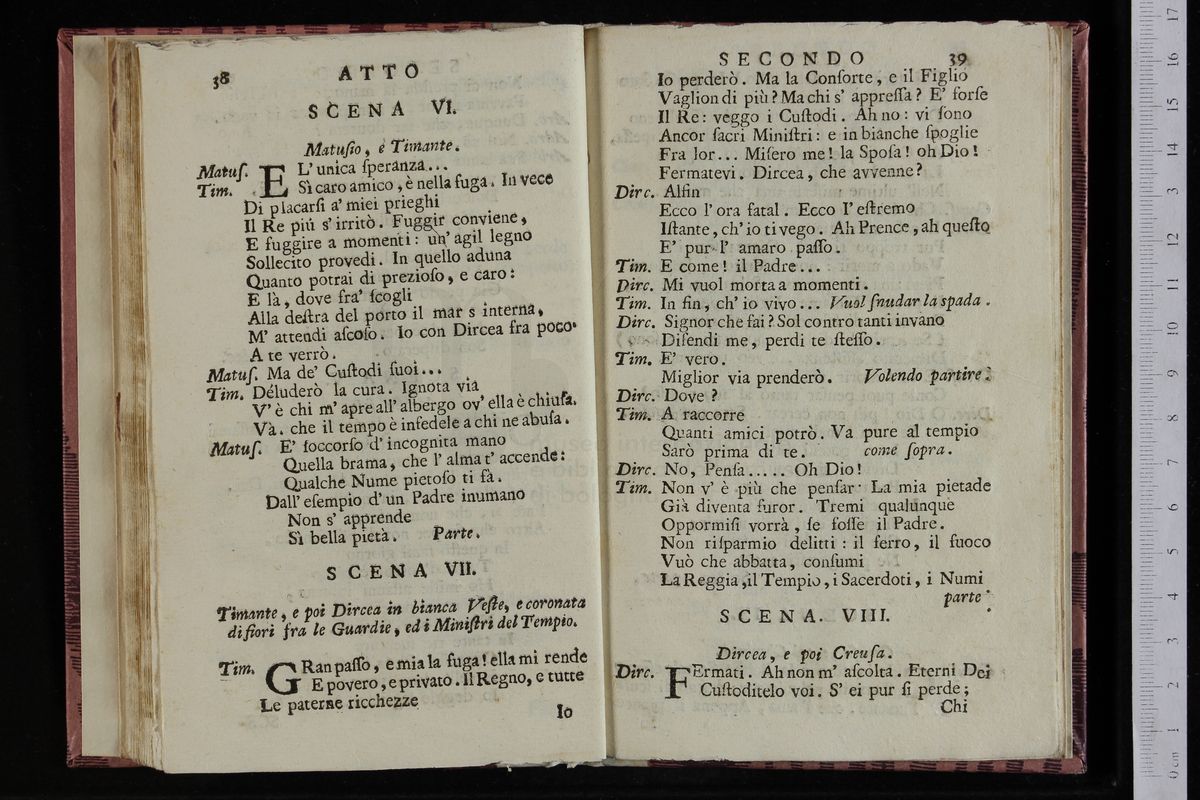 38 ATTO
SCENA VI.
Matusio, e Timante.
Matuſ. EL' unica ſperanza...
Tim. Sì caro amico, è nella fuga. In vece
Di placarſi a' miei prieghi
Il Re più s' irritò. Fuggir conviene,
E fuggire a momenti: un' agil legno
Sollecito provedi. In quello aduna
Quanto potrai di prezioſo, e caro:
E là, dove fra' ſcogli
Alla deſtra del porto il mar s interna,
M' attendi aſcoſo. Io con Dircea fra poco
A te verrò.
Matuſ. Ma de' Cuſtodi ſuoi...
Tim. Déluderò la cura. Ignota via
V' è chi m' apre all' albergo ov' ella è chiuſa.
Và. che il tempo è infedele a chi ne abuſa.
Matuſ. E' ſoccorſo d' incognita mano
Quella brama, che l' alma t' accende:
Qualche Nume pietoſo ti fà.
Dall' eſempio d' un Padre inumano
Non s' apprende
Sì bella pietà. Parte.
SCENA VII.
Timante, e poi Dircea in bianca Veſte, e coronata
di fiori fra le Guardie, ed i Miniſtri del Tempio.
Tim. GRan paſſo, e mia la fuga! ella mi rende
E povero, e privato. Il Regno, e tutte
Le paterne ricchezze
Io
SECONDO 39
Io perderò. Ma la Conſorte, e il Figlio
Vaglion di più? Ma chi s' appreſſa? E' forſe
Il Re: veggo i Cuſtodi. Ah no: vi ſono
Ancor ſacri Miniſtri: e in bianche ſpoglie
Fra lor... Miſero me! la Spoſa! oh Dio!
Fermatevi. Dircea, che avvenne?
Dirc. Alfin
Ecco l' ora fatal. Ecco l' eſtremo
Iſtante, ch' io ti vego. Ah Prence, ah queſto
E' pur l' amaro paſſo.
Tim. E come! il Padre...
Dirc. Mi vuol morta a momenti.
Tim. In fin, ch' io vivo... Vuol ſnudar la spada.
Dirc. Signor che fai? Sol contro tanti invano
Difendi me, perdi te ſteſſo.
Tim. E' vero.
Miglior via prenderò. Volendo partire.
Dirc. Dove?
Tim. A raccorre
Quanti amici potrò. Va pure al tempio
Sarò prima di te. come ſopra.
Dirc. No, Penſa..... Oh Dio!
Tim. Non v' è più che penſar· La mia pietade
Già diventa furor. Tremi qualunque
Oppormiſi vorrà, ſe foſſe il Padre.
Non riſparmio delitti: il ferro, il fuoco
Vuò che abbatta, conſumi
La Reggia, il Tempio, i Sacerdoti, i Numi
parte
SCENA. VIII.
Dircea, e poi Creuſa.
Dirc. FErmati. Ah non m' aſcolta. Eterni Dei
Cuſtoditelo voi. S' ei pur ſi perde;
Chi